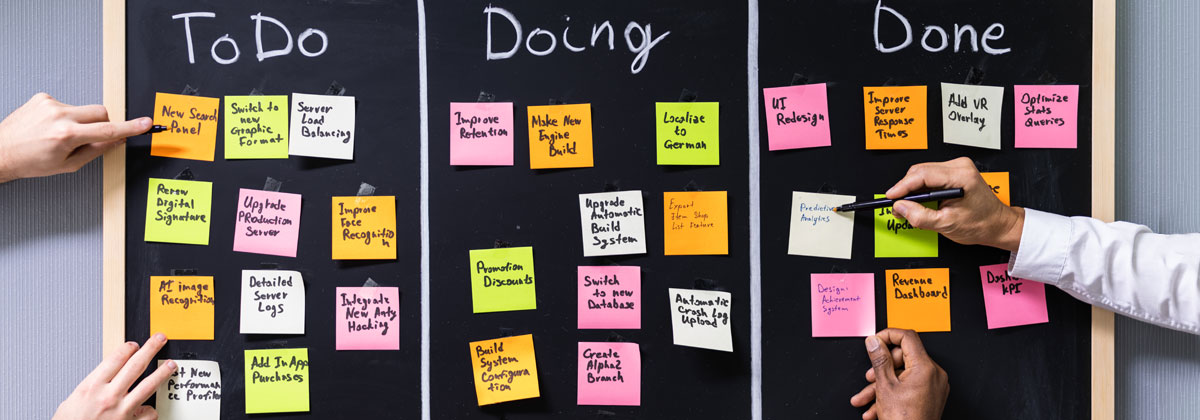 To Do
New Search
Panel
Switch to
new
Graphic
Format
Server
Load
Balancing
Renew
Digital
Signature
Upgrade
PRoduction
Server
Improve
Face
Recognitio
n
AI image
Recognition
Detailed
Server
Logs
Integrate
New Anty
Hacking
New
Performan
ce Profile
Add In App
Purchases
Doing
Improve
Retention
Make New
Engine
Build
Localize
to
German
Upgrade
Automatic
Build
System
Expand
Item Shop
List Feature
Promotion
Discounts
Switch
to new
Database
Automatic
Crash Log
Upload
Build
System
Configura
tion
Create
Alpha2
Branch
Done
UI
Redesign
Improve
Server
Response
Times
Add VR
Overlay
Optimize
Stats
Queries
Predictive
Analytics
Design
Achievement
System
Revenue
Dashboard
KPI